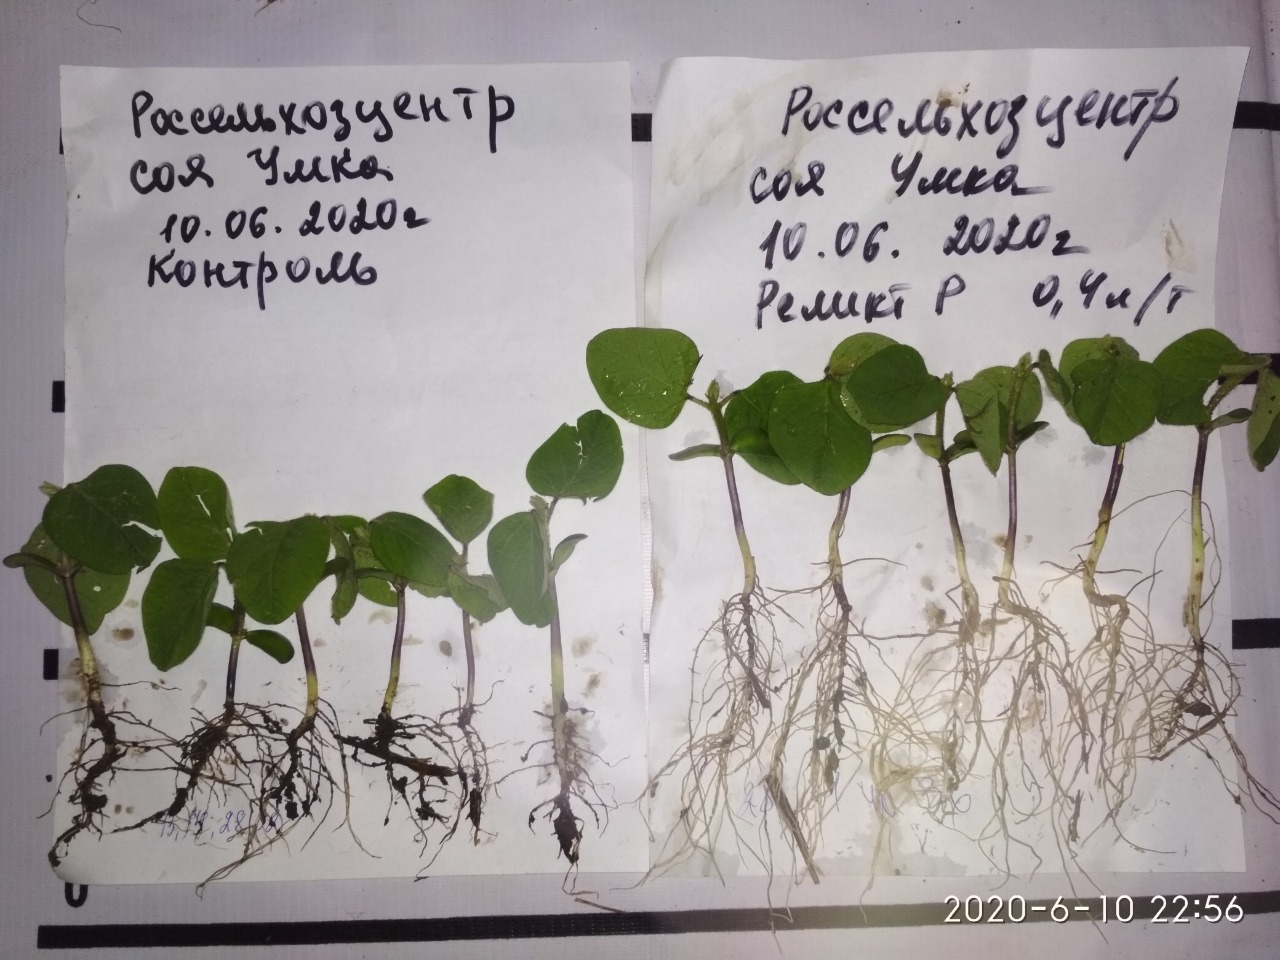 Россельхозцентр
соя Умка
10.06.2020г
Контроль
Россельхозцентр
соя Умка
10.06. 2020г
Реликт Р 0,4л/т
2020-6-10 22:56